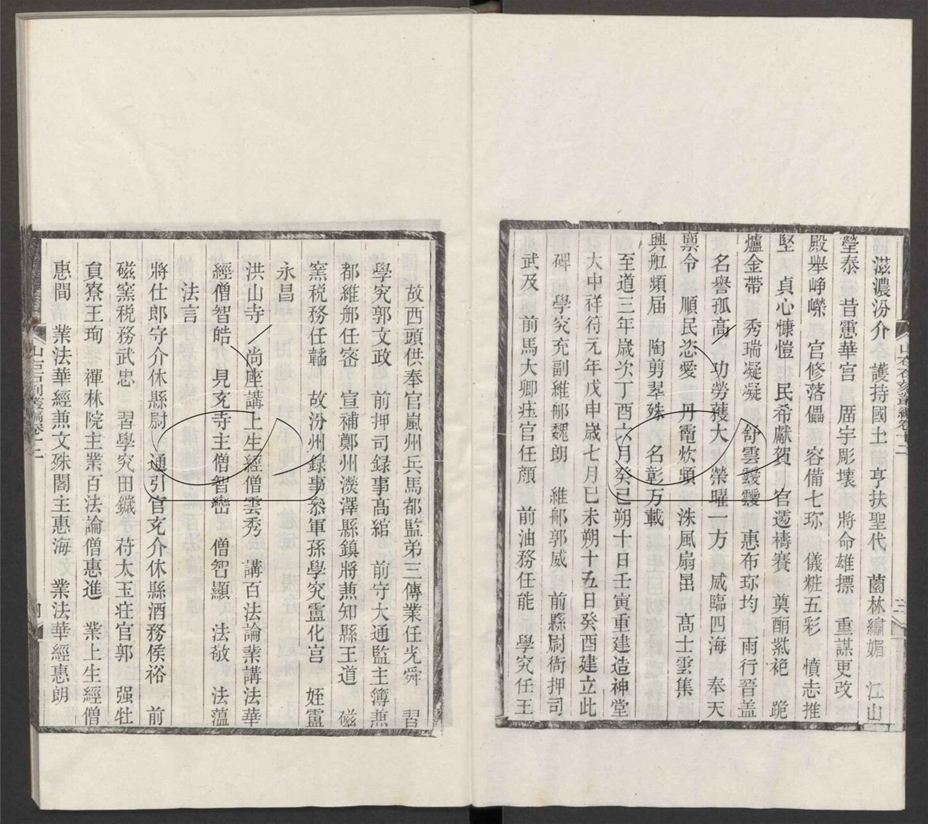 滋濃汾介　護持國土　亨扶聖代　薗林繡媚　江山
瑩泰　昔藼華宮　厝宇彫壞　將命雄摽　重謀更改
殿舉崢嶸　宮修落儡　容備七珎　儀粧五彩　憤志推
堅　貞心慷愷　民希獻賀　官邊禱賽　奠酹紫祂　跪
爐金帶　秀瑞凝凝　舒雲靉靉　惠布珎均　雨行晉蓋
名譽孤高　功勞蒦大　榮曜一方　威臨四海　奉天
禀令　順民恣愛　丹電炊頭　洙風扇㞻　髙士雲集
興舡頻届　陶剪翠殊　名彰万載
至道三年歲次丁酉六月癸巳朔十日壬寅重建造神堂
大中祥符元年戊申歲七月巳未朔十五日癸酉建立此
碑　學究充副維那魏朗　維那郭威　前縣尉衙押司
武及　前馬大卿㽵官任顏　前油務任能　學究任王
故西頭供奉官嵐州兵馬都監弟三傳業任光舜　習
學究郭文政　前押司録事髙綰　前守大通監主簿𠔥
都維那任密　宣補鄭州滎澤縣鎮將𠔥知縣王道　磁
窯税務任皤　故汾州録事叅軍孫學究霻化宫　姪霻
永昌
洪山寺　尚座講上生經僧雲秀　講百法論業講法華
經僧智皓　見充寺主僧智巒　僧智顯　法敬　法藴
法言
將仕郎守介休縣尉　通引官充介休縣酒務侯裕　前
磁窯税務武忠　習學究田鐵　苻太玉㽵官郭　强牡
貟寮王珣　禪林院主業百法論僧惠進　業上生經僧
惠間　業法華經𠔥文殊閣主惠海　業法華經惠朗